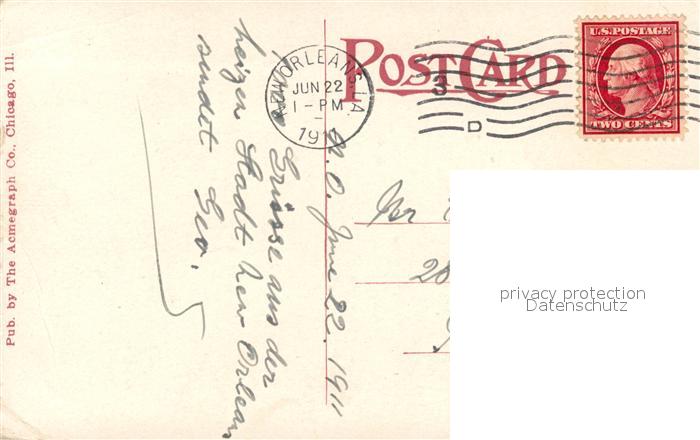 Pub. by The Acmegraph Co., Chicago, Ill.
POST CARD
NEW ORLEANS, LA.
JUN 22
1 - PM
191
3
D
U.S. POSTAGE
TWO CENTS
N.O. June 22. 1911
Grüsse aus der
heizen Stadt New Orleans
sendet Geo.
Mr
20
privacy protection
Datenschutz